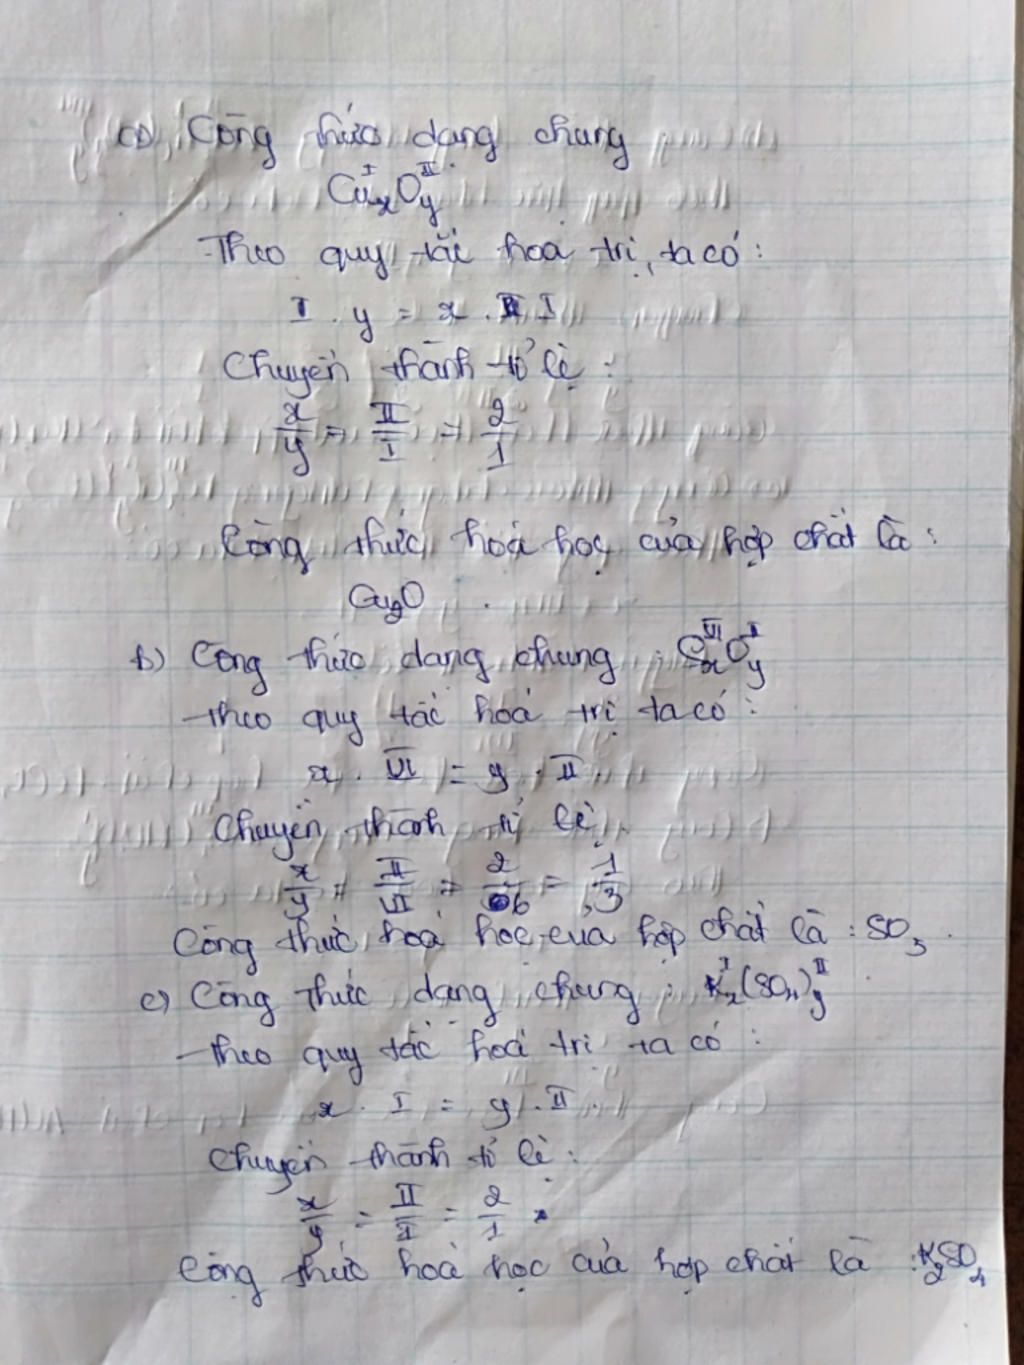 a) Công thức dạng chung
Cu^I_xO^II_y
Theo quy tắc hoá trị, ta có:
I . y = x . I
Chuyển thành tỉ lệ:
x/y = II/I = 2/1
Công thức hoá học của hợp chất là:
Cu2O
b) Công thức dạng chung : S^VI_xO^II_y
Theo quy tắc hoá trị ta có:
x . VI = y . II
Chuyển thành tỉ lệ
x/y = II/VI = 2/6 = 1/3
Công thức hoá học của hợp chất là : SO3.
c) Công thức dạng chung : K^I_x(SO4)^II_y
Theo quy tắc hoá trị ta có:
x . I = y . II
Chuyển thành tỉ lệ:
x/y = II/I = 2/1
Công thức hoá học của hợp chất là : K2SO4